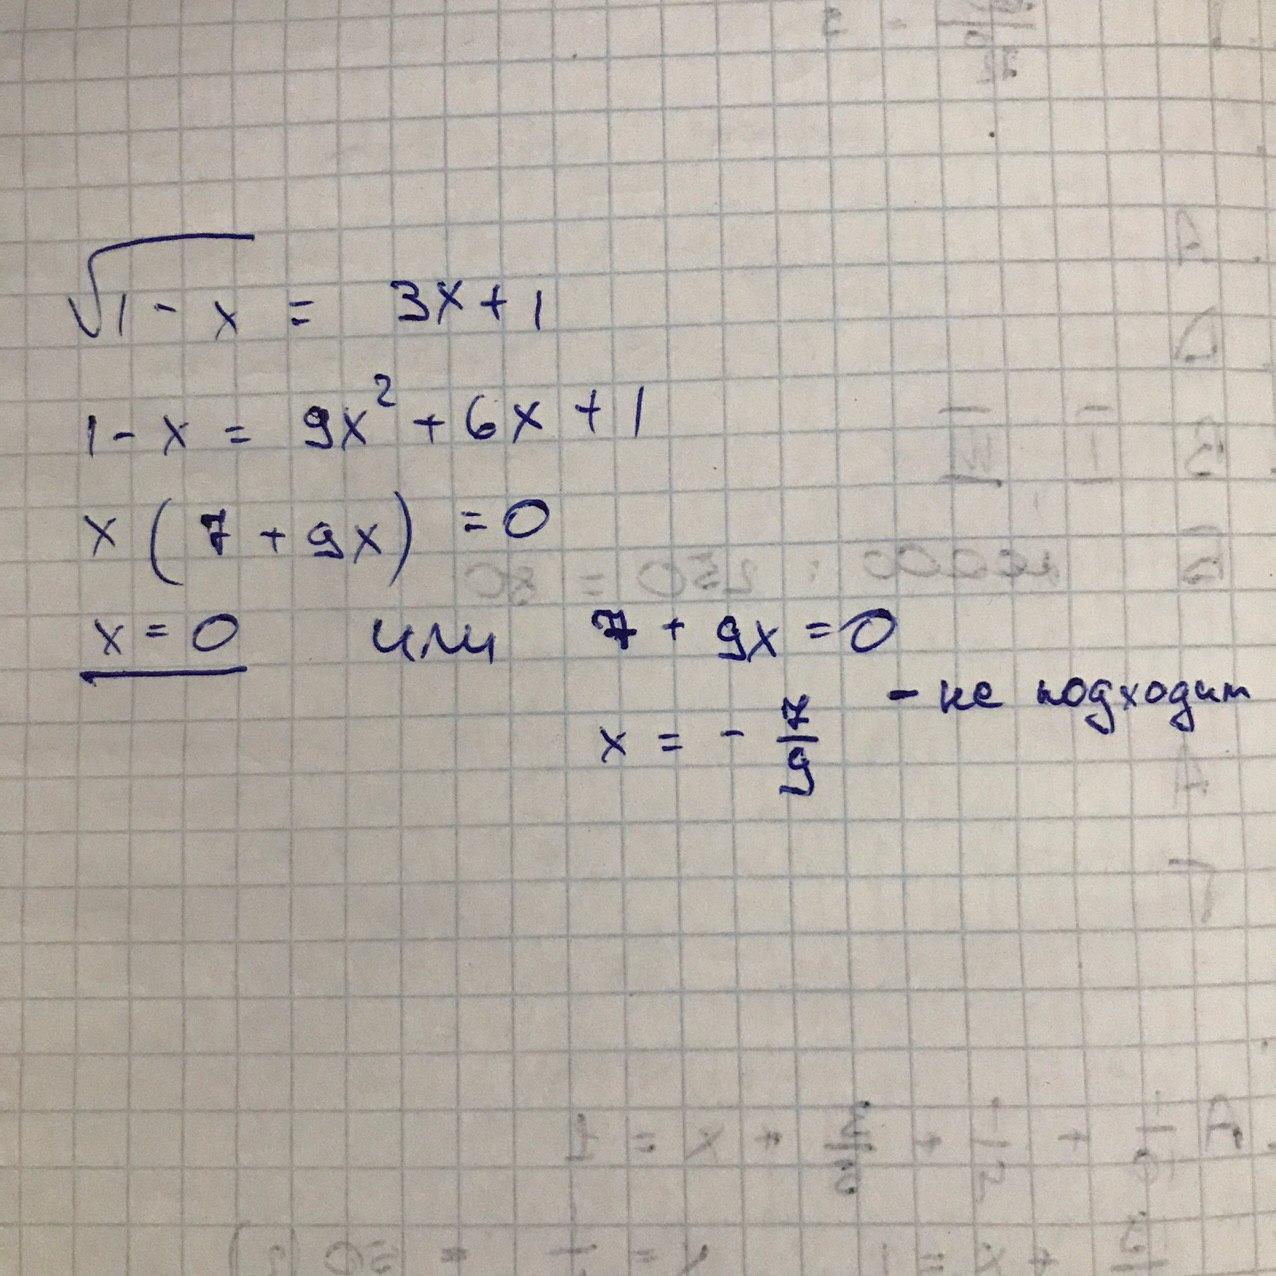 √1 - x = 3x + 1
1 - x = 9x² + 6x + 1
x (7 + 9x) = 0
x = 0 или 7 + 9x = 0
x = - 7/9 - не подходит